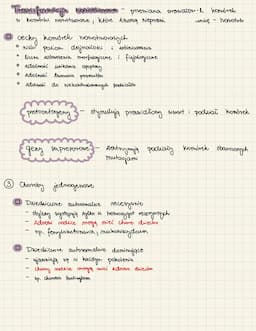 Transformacja nowotworowa - przemiana prawidłow. kom.
w komórki nowotworowe, które tworzą
cechy komórek nowotworowych
niski poziom dojrzałości i zróżnicowania
zdolność unikania apoptozy
zdolność tworzenia przerzutów
zdolność do niekontrolowanych podziałów
protoonkogeny - stymulują prawidłowy wzrost i podział komórek
geny supresorowe - zatrzymują podziały komórek
mutacjami
③ Choroby jednogenowe
Dziedziczenie autosomalne recesywne
- objawy występują tylko u homozygot recesywnych
- zdrowi rodzice mogą mieć chore dziecko
- np. fenyloketonuria, mukowiscydoza
Dziedziczenie autosomalne dominujące
- ujawniają się w każdym pokoleniu
- chorzy rodzice mogą mieć zdrowe dziecko
- np. choroba Huntingtona